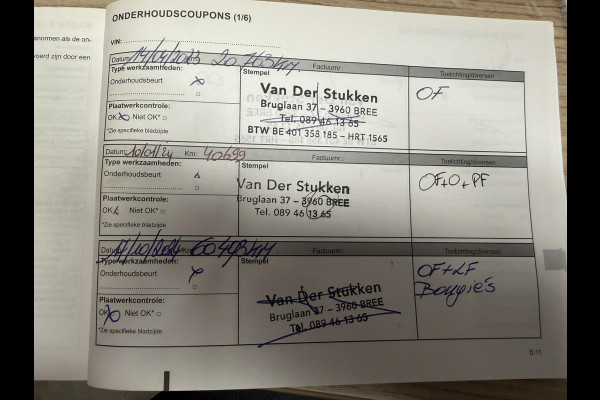 ONDERHOUDSCOUPONS (1/6)
normen als de on-
voerd zijn door een
VIN:
Datum: 14/04/2023 20.763km Factuurnr.: Toelichting/diversen
Type werkzaamheden:
Onderhoudsbeurt
Plaatwerkcontrole:
OK Niet OK*
*Zie specifieke bladzijde
Stempel
Van Der Stukken
Bruglaan 37 – 3960 BREE
Tel. 089 46 13 65
BTW BE 401 358 185 – HRT 1565
OF
Datum: 10/01/24 Km: 40699 Factuurnr.: Toelichting/diversen
Type werkzaamheden:
Onderhoudsbeurt
Plaatwerkcontrole:
OK Niet OK*
*Zie specifieke bladzijde
Stempel
Van Der Stukken
Bruglaan 37 – 3960 BREE
Tel. 089 46 13 65
OF+O+PF
Datum: Km: 60493km Factuurnr.: Toelichting/diversen
Type werkzaamheden:
Onderhoudsbeurt
Plaatwerkcontrole:
OK Niet OK*
*Zie specifieke bladzijde
Stempel
Van Der Stukken
Bruglaan 37 – 3960 BREE
Tel. 089 46 13 65
OF+LF
Bougie's
6.11